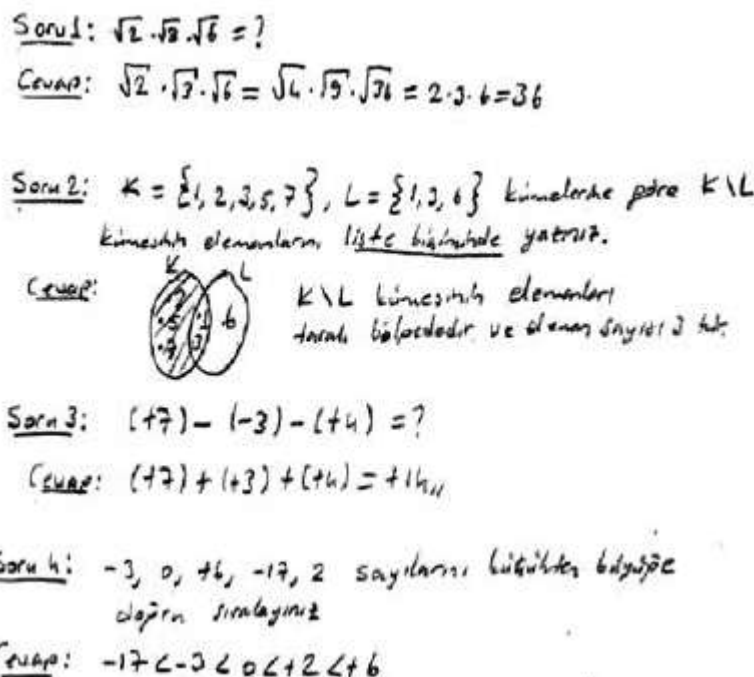 Soru 1: √2 · √3 · √6 = ?
Cevap: √2 · √3 · √6 = √4 · √9 · √36 = 2·3·6=36
Soru 2: K = {1, 2, 3, 5, 7}, L = {1, 3, 6} kümelerine göre K \ L
kümesinin elemanlarını liste biçiminde yazınız.
Cevap:
K L
.2 .5 .7 .1 3 6
K \ L kümesinin elemanları
taralı bölgededir ve eleman sayısı 3 tür.
Soru 3: (+7) – (-3) – (+4) = ?
Cevap: (+7) + (+3) + (+4) = +14,,
Soru 4: -3, 0, +6, -17, 2 sayılarını küçükten büyüğe
doğru sıralayınız
Cevap: -17 < -3 < 0 < +2 < +6